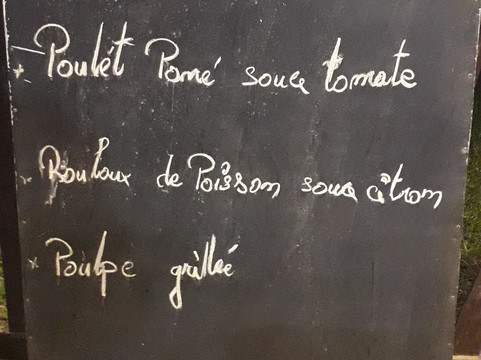 Poulét Pané souce tomate
Rouloux de Poisson souce citrom
Poulpe grillée